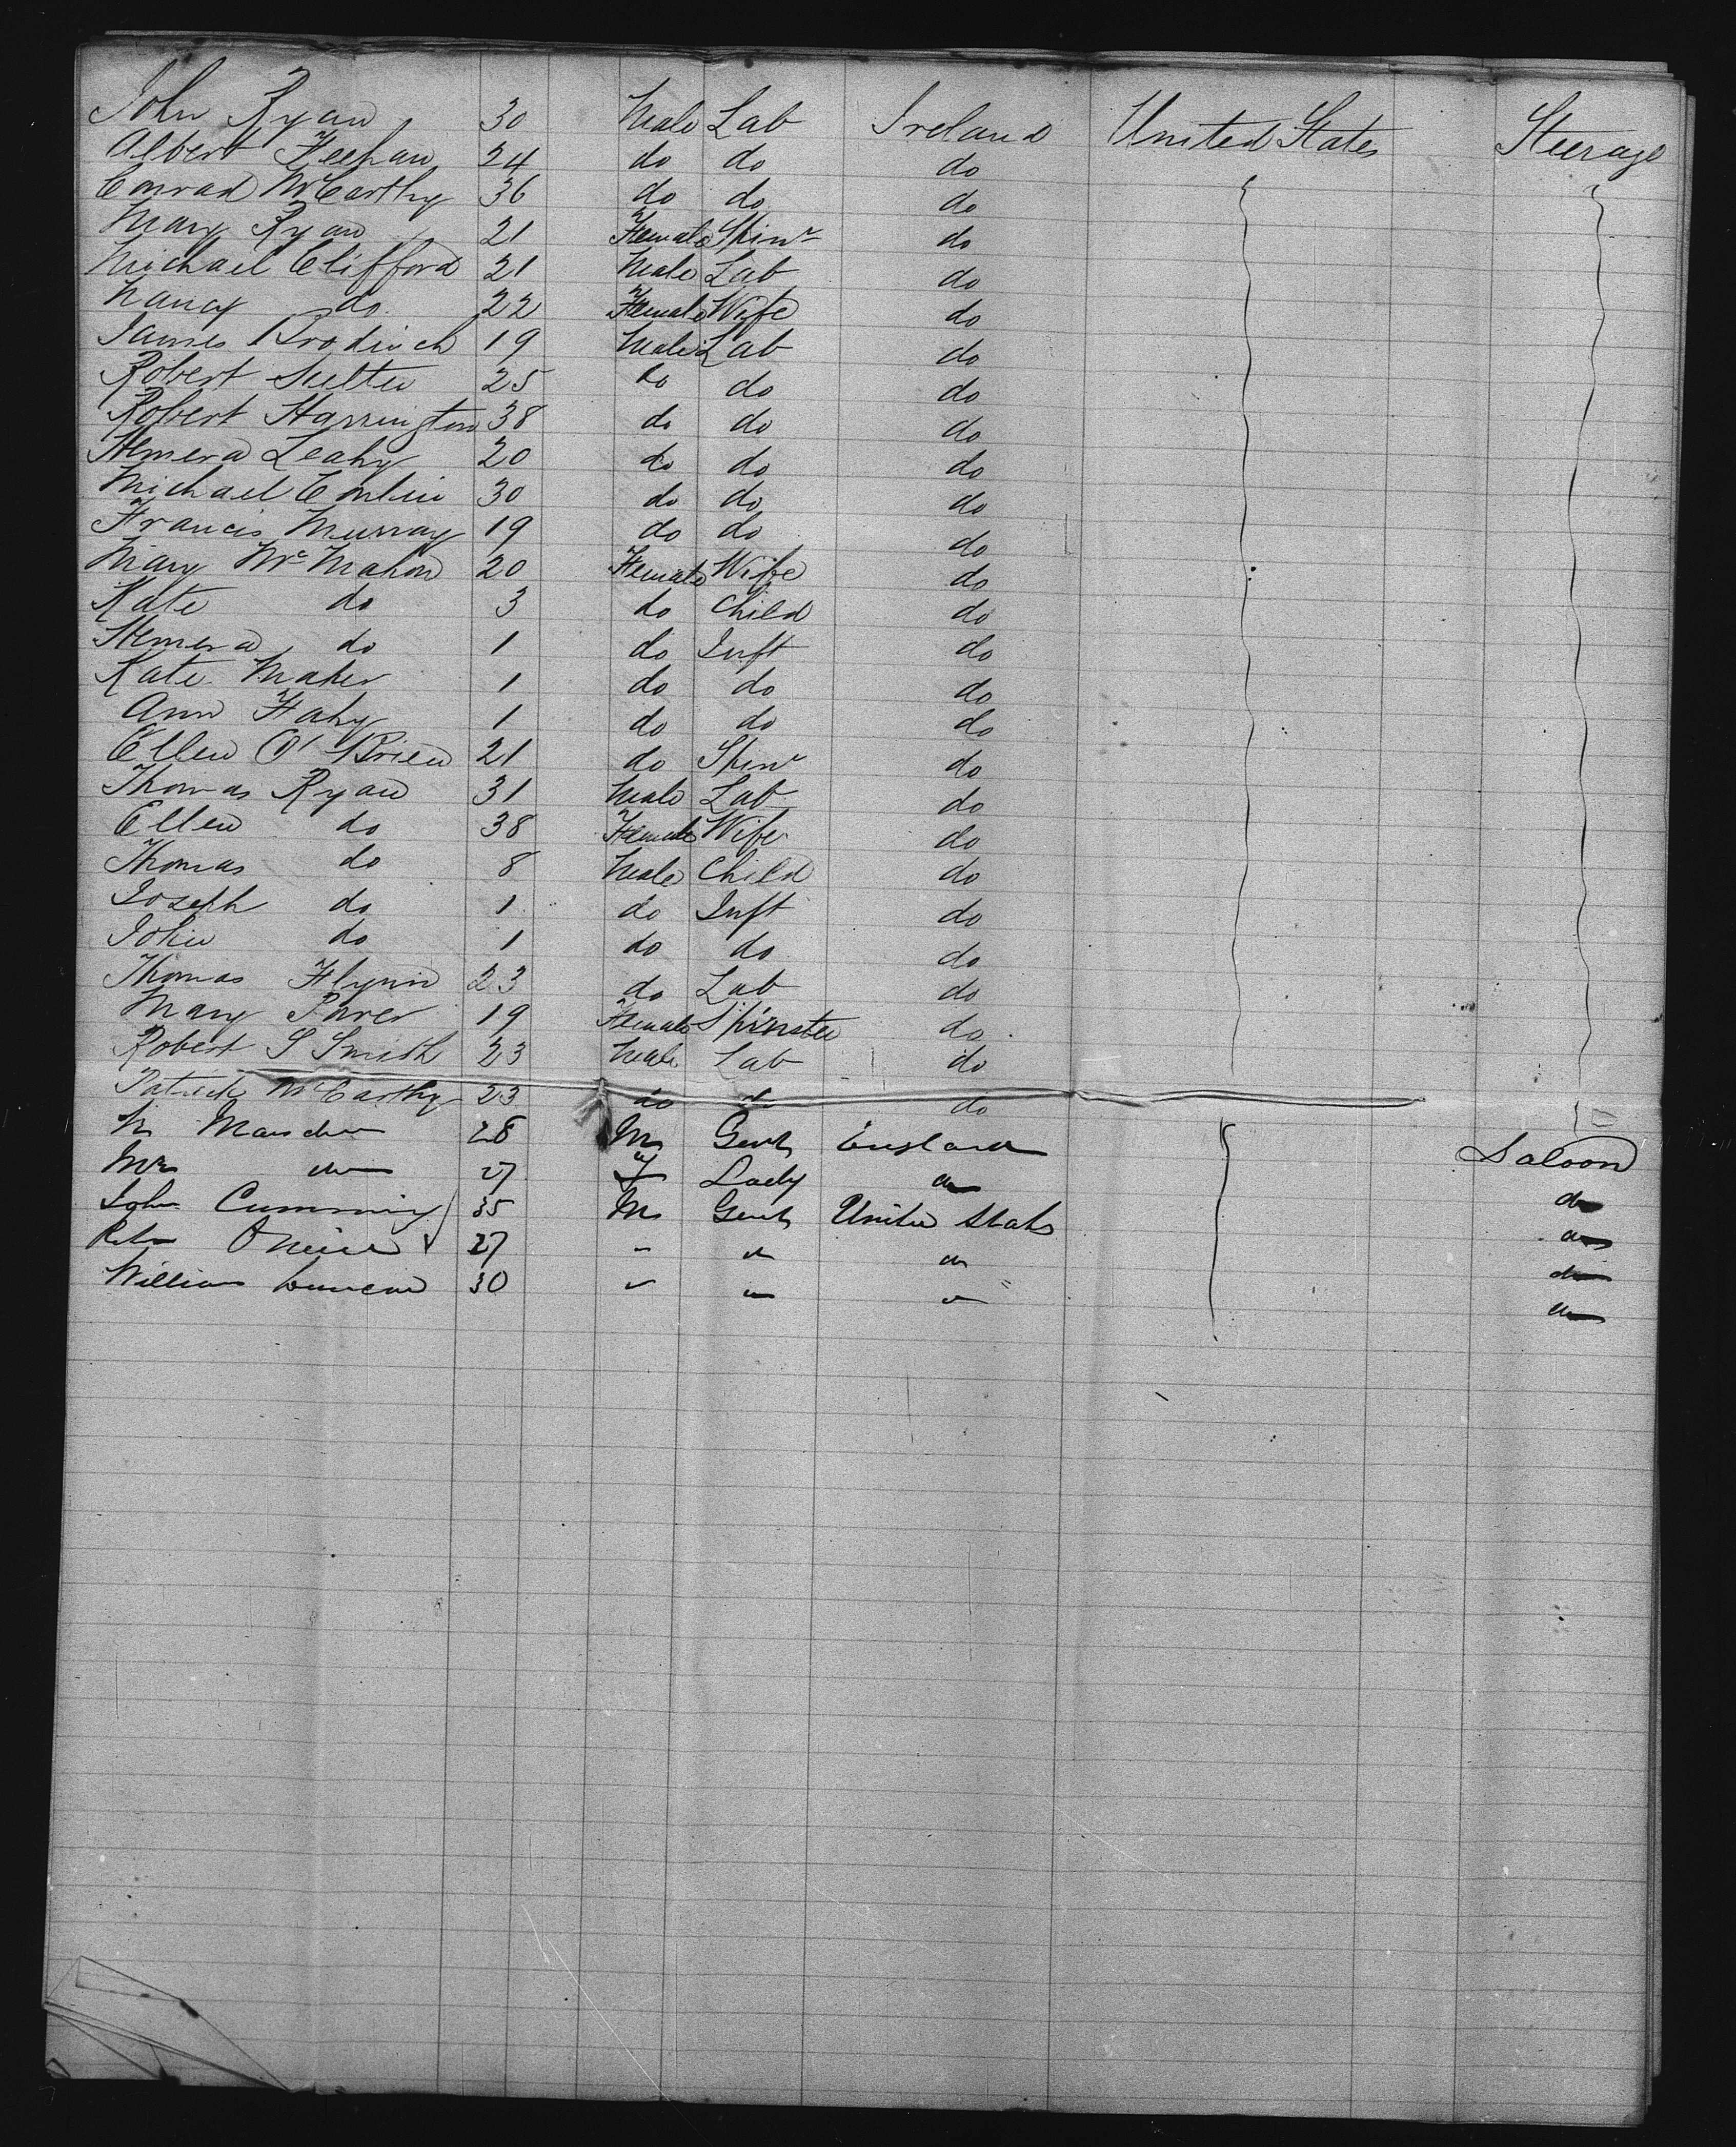 John Ryan 30 Male Lab Ireland United States Steerage
Albert Feehan 24 do do do
Conrad McCarthy 36 do do do
Mary Ryan 21 Female Spinr do
Michael Clifford 21 Male Lab do
Nancy do 22 Female Wife do
James Brodrick 19 Male Lab do
Robert 25 do do do
Robert Harrington 38 do do do
Leahy 20 do do do
Michael Conlin 30 do do do
Francis Murray 19 do do do
Mary McMahon 20 Female Wife do
Kate do 3 do Child do
do 1 do Inft do
Kate Maher 1 do do do
Ann Fahy 1 do do do
Ellen O'Brien 21 do Spinr do
Thomas Ryan 31 Male Lab do
Ellen do 38 Female Wife do
Thomas do 8 Male Child do
Joseph do 1 do Inft do
John do 1 do do do
Thomas Flynn 23 do Lab do
Mary 19 Female Spinster do
Robert S Smith 23 Male Lab do
Patrick McCarthy 23 do do do
28 M Gent England Saloon
Mrs do 27 F Lady do do
John Cumming 35 M Gent United States do
27 " do do do
William Duncan 30 " do do do